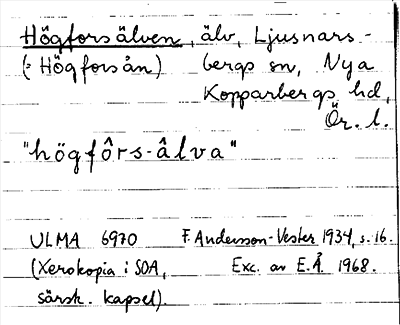 Högforsälven, älv, Ljusnars-
(: Högforsån) bergs sn, Nya
Kopparbergs hd,
Ör. l.
"högfôrs-âlva"
ULMA 6970 F. Andersson-Vester 1934, s. 16.
(Xerokopia i SOA, Exc. av E.Å. 1968.
särsk. kapsel).